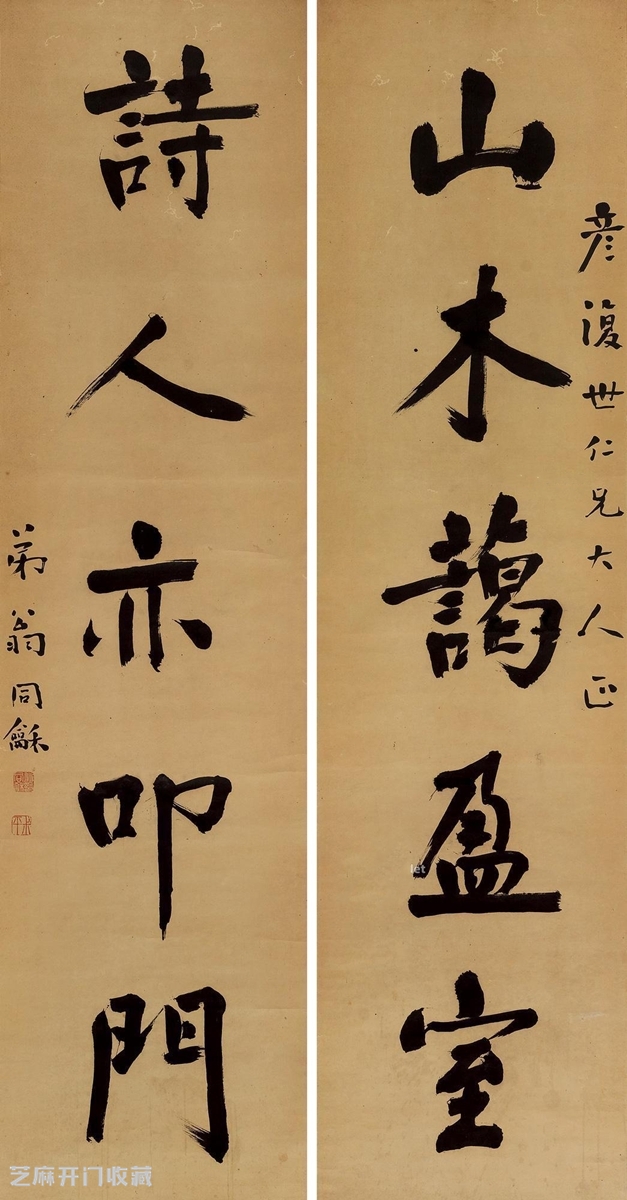 彦復世仁兄大人正
山木藹盈室
詩人亦叩門
弟翁同龢
叔平
let
芝麻开门收藏